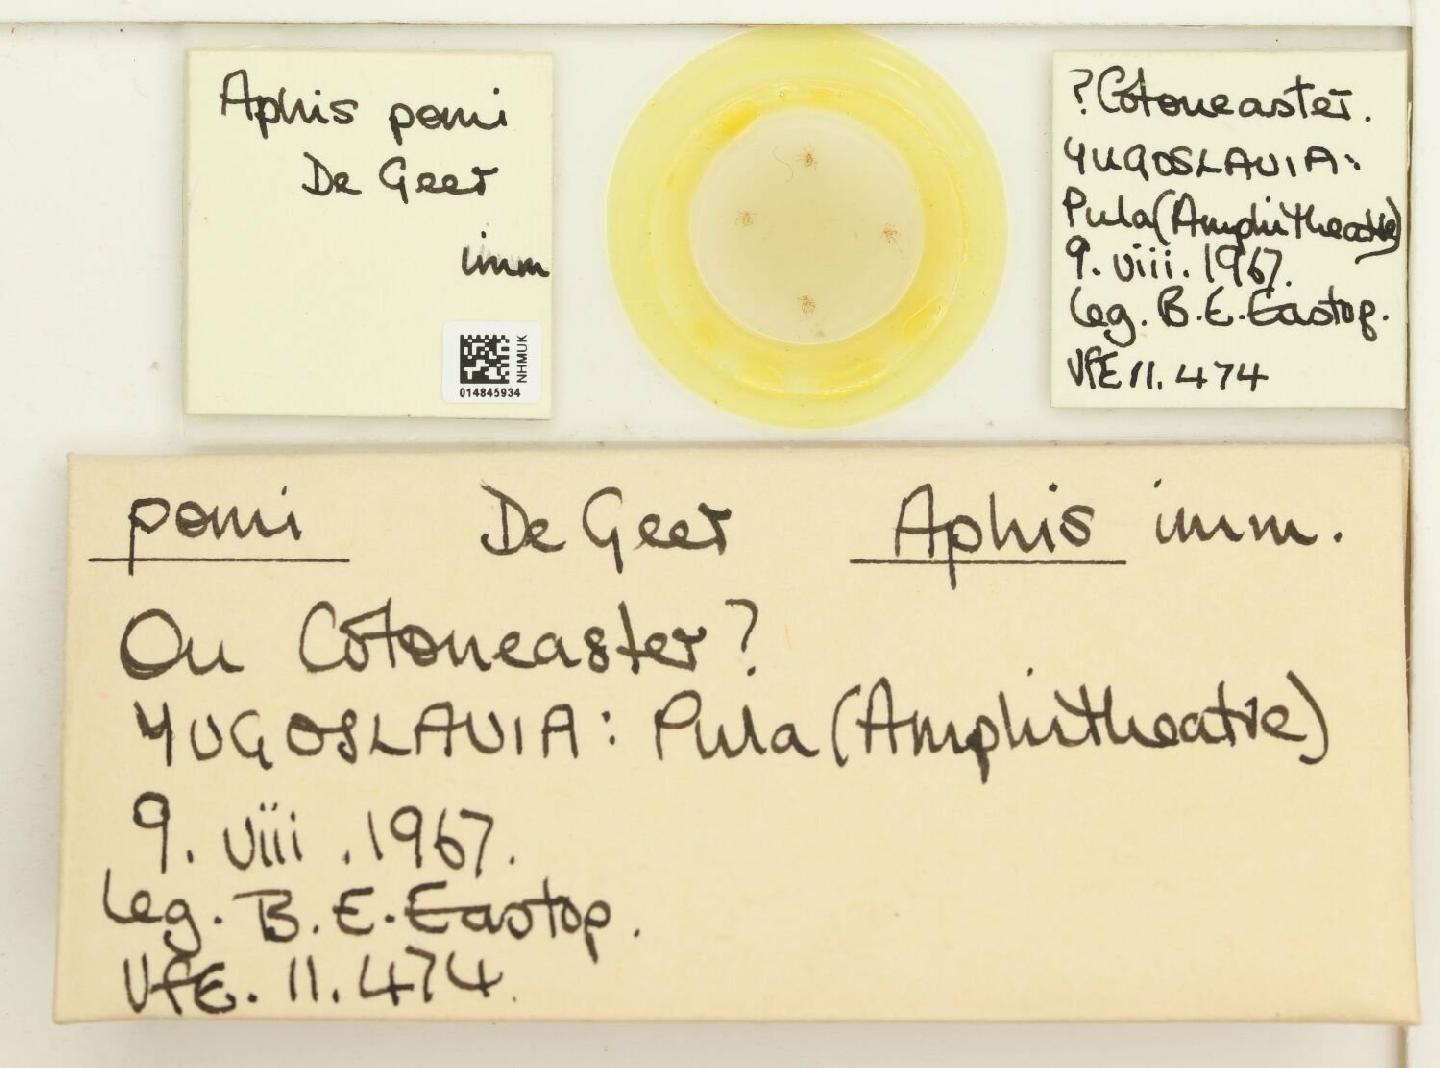 Aphis pomi
De Geer
imm
NHMUK
014845934
?Cotoneaster.
YUGOSLAVIA:
Pula (Amphitheatre)
9. viii. 1967.
leg. B.E. Eastop.
VfE 11. 474
pomi De Geer Aphis imm.
On Cotoneaster?
YUGOSLAVIA: Pula (Amphitheatre)
9. viii. 1967.
leg. B.E. Eastop.
VfE. 11. 474.